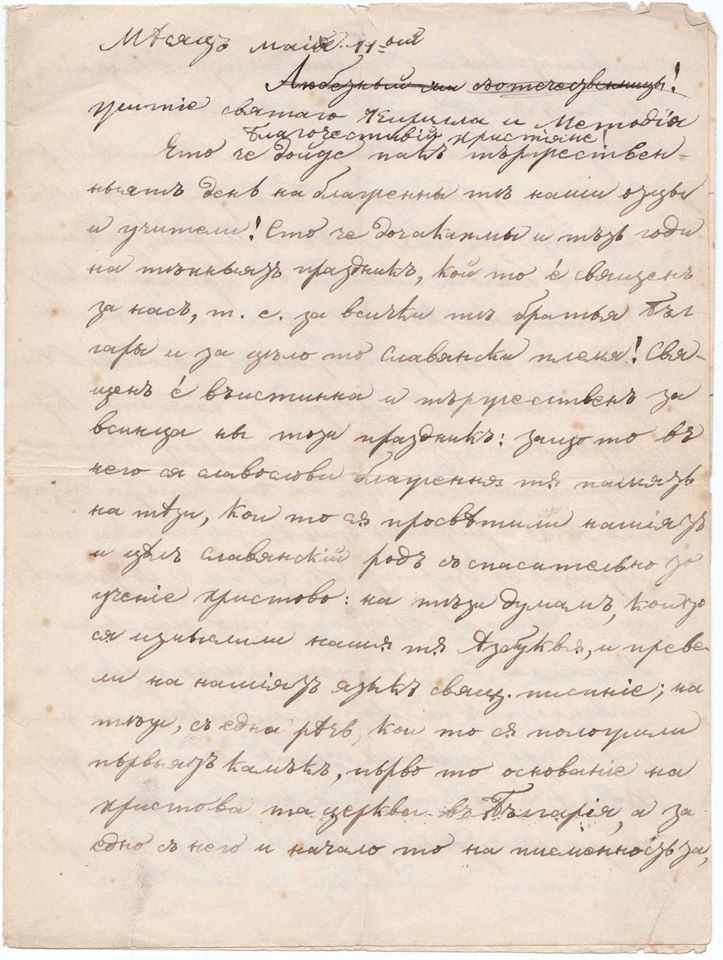 Мѣсяцъ маія 11-ый
Любезный ми съотечественицы!
житіе святаго Кирилла и Методія
Благочестивіи христіяне!
Ето че дойде пакъ тържествен-
ныятъ день на блаженны тѣ наши отцы
и учители! Ето че дочакахмы и тъзи годи
на тъхныятъ праздникъ, кой то é священъ
за насъ, т. е. за всички тѣ братья Бъл-
гары и за цѣло то Славянски племя! Свя-
щенъ é въистинна и тържественъ за
всинца ны този праздникъ: защо то въ
него ся славослови блаженнѫ тѫ памятъ
на тѣзи, кои то сѫ просвѣтили нашіятъ
и цѣлъ Славянскій родъ съ спасително то
ученіе Христово: на тѣзи думамъ, кои то
сѫ измыслили нашѫ тѫ Азбукѫ, и преве-
ли на нашіятъ языкъ свящ. писаніе; на
тѣзи, съ една рѣч, кои то сѫ положили
първыятъ камъкъ, първо то основаніе на
Христова та церквы въ Българіѫ, а за
едно съ него и начало то на писменностьта,